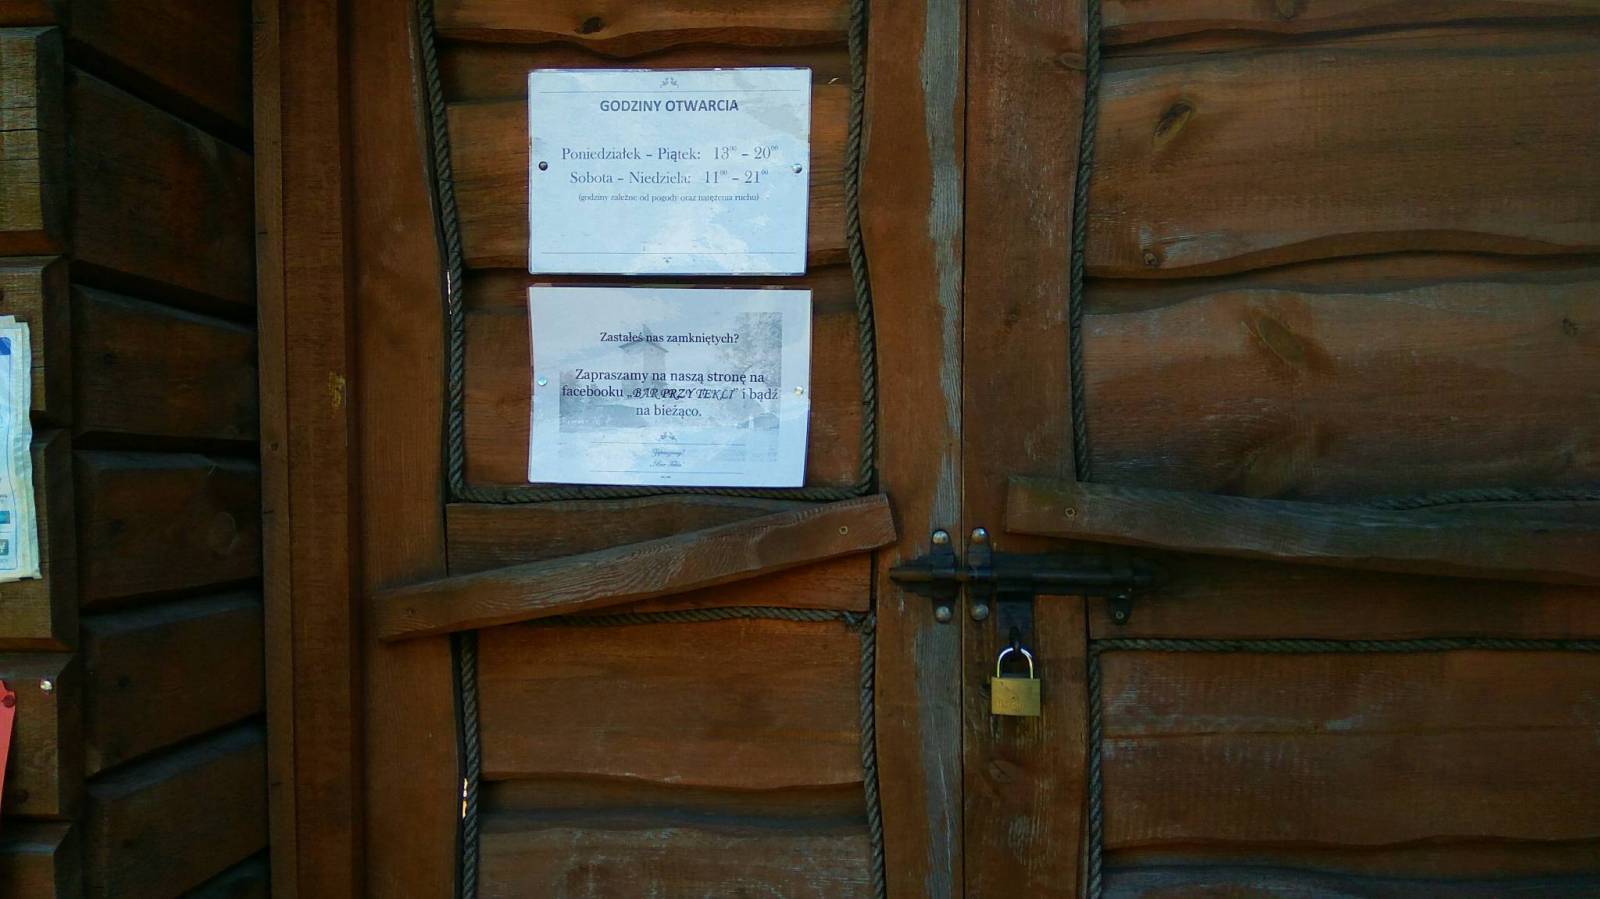 GODZINY OTWARCIA
Poniedziałek – Piątek: 13⁰⁰ – 20⁰⁰
Sobota – Niedziela: 11⁰⁰ – 21⁰⁰
(godziny zależne od pogody oraz natężenia ruchu)
Zastałeś nas zamkniętych?
Zapraszamy na naszą stronę na
facebooku „BAR PRZY TEKLI” i bądź
na bieżąco.
Zapraszamy!